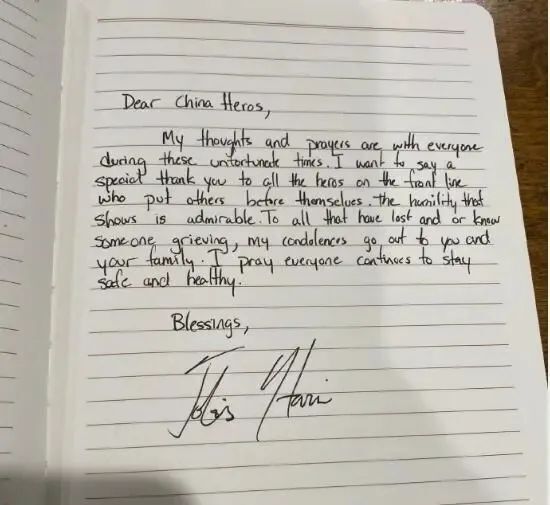 Dear China Heros,
My thoughts and prayers are with everyone
during these unfortunate times. I want to say a
special thank you to all the heros on the front line
who put others before themselves. the humility that
shows is admirable. To all that have lost and or know
someone grieving, my condolences go out to you and
your family. I pray everyone continues to stay
safe and healthy.
Blessings,
Tobias Harris